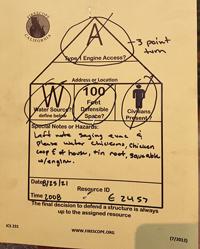 FIRESCOPE
CALIFORNIA
A
3 point
turn
Type 1 Engine Access?
Address or Location
W
100
Feet
Water Source?
define below
Defensible
Space?
Civilians
Present?
Special Notes or Hazards:
Left note saying evac &
please water chickens, chicken
coop E of house, tin roof, squeeable
w/engine.
Date 8/25/21
Resource ID
Time 2008
E 2457
The final decision to defend a structure is always
up to the assigned resource
ICS 231
WWW.FIRESCOPE.ORG
(7/2012)